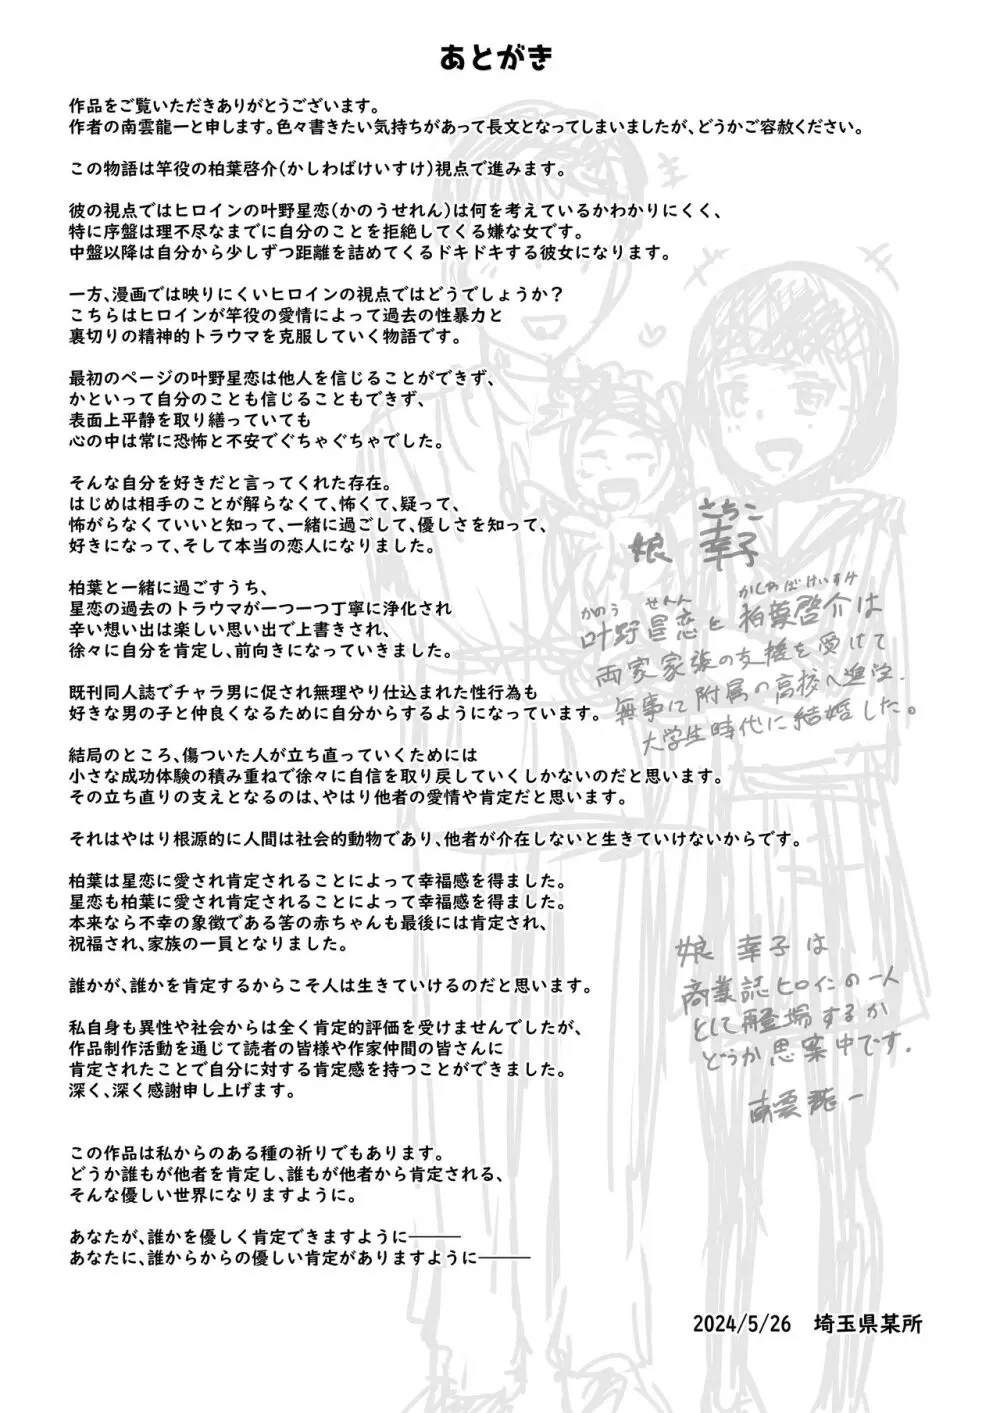 あとがき
作品をご覧いただきありがとうございます。
作者の南雲龍一と申します。色々書きたい気持ちがあって長文となってしまいましたが、どうかご容赦ください。
この物語は竿役の柏葉啓介(かしわばけいすけ)視点で進みます。
彼の視点ではヒロインの叶野星恋(かのうせれん)は何を考えているかわかりにくく、
特に序盤は理不尽なまでに自分のことを拒絶してくる嫌な女です。
中盤以降は自分から少しずつ距離を詰めてくるドキドキする彼女になります。
一方、漫画では映りにくいヒロインの視点ではどうでしょうか?
こちらはヒロインが竿役の愛情によって過去の性暴力と
裏切りの精神的トラウマを克服していく物語です。
最初のページの叶野星恋は他人を信じることができず、
かといって自分のことも信じることもできず、
表面上平静を取り繕っていても
心の中は常に恐怖と不安でぐちゃぐちゃでした。
そんな自分を好きだと言ってくれた存在。
はじめは相手のことが解らなくて、怖くて、疑って、
怖がらなくていいと知って、一緒に過ごして、優しさを知って、
好きになって、そして本当の恋人になりました。
柏葉と一緒に過ごすうち、
星恋の過去のトラウマが一つ一つ丁寧に浄化され
辛い想い出は楽しい思い出で上書きされ、
徐々に自分を肯定し、前向きになっていきました。
既刊同人誌でチャラ男に促され無理やり仕込まれた性行為も
好きな男の子と仲良くなるために自分からするようになっています。
結局のところ、傷ついた人が立ち直っていくためには
小さな成功体験の積み重ねで徐々に自信を取り戻していくしかないのだと思います。
その立ち直りの支えとなるのは、やはり他者の愛情や肯定だと思います。
それはやはり根源的に人間は社会的動物であり、他者が介在しないと生きていけないからです。
柏葉は星恋に愛され肯定されることによって幸福感を得ました。
星恋も柏葉に愛され肯定されることによって幸福感を得ました。
本来なら不幸の象徴である筈の赤ちゃんも最後には肯定され、
祝福され、家族の一員となりました。
誰かが、誰かを肯定するからこそ人は生きていけるのだと思います。
私自身も異性や社会からは全く肯定的評価を受けませんでしたが、
作品制作活動を通じて読者の皆様や作家仲間の皆さんに
肯定されたことで自分に対する肯定感を持つことができました。
深く、深く感謝申し上げます。
この作品は私からのある種の祈りでもあります。
どうか誰もが他者を肯定し、誰もが他者から肯定される、
そんな優しい世界になりますように。
あなたが、誰かを優しく肯定できますように―――
あなたに、誰からからの優しい肯定がありますように―――
さちこ
娘 幸子
かのう せれん かしわばけいすけ
叶野星恋と柏葉啓介は
両家家族の支援を受けて
無事に附属の高校へ進学.
大学生時代に結婚した。
娘 幸子は
商業誌ヒロインの一人
として再登場するか
どうか思案中です.
南雲龍一
2024/5/26 埼玉県某所